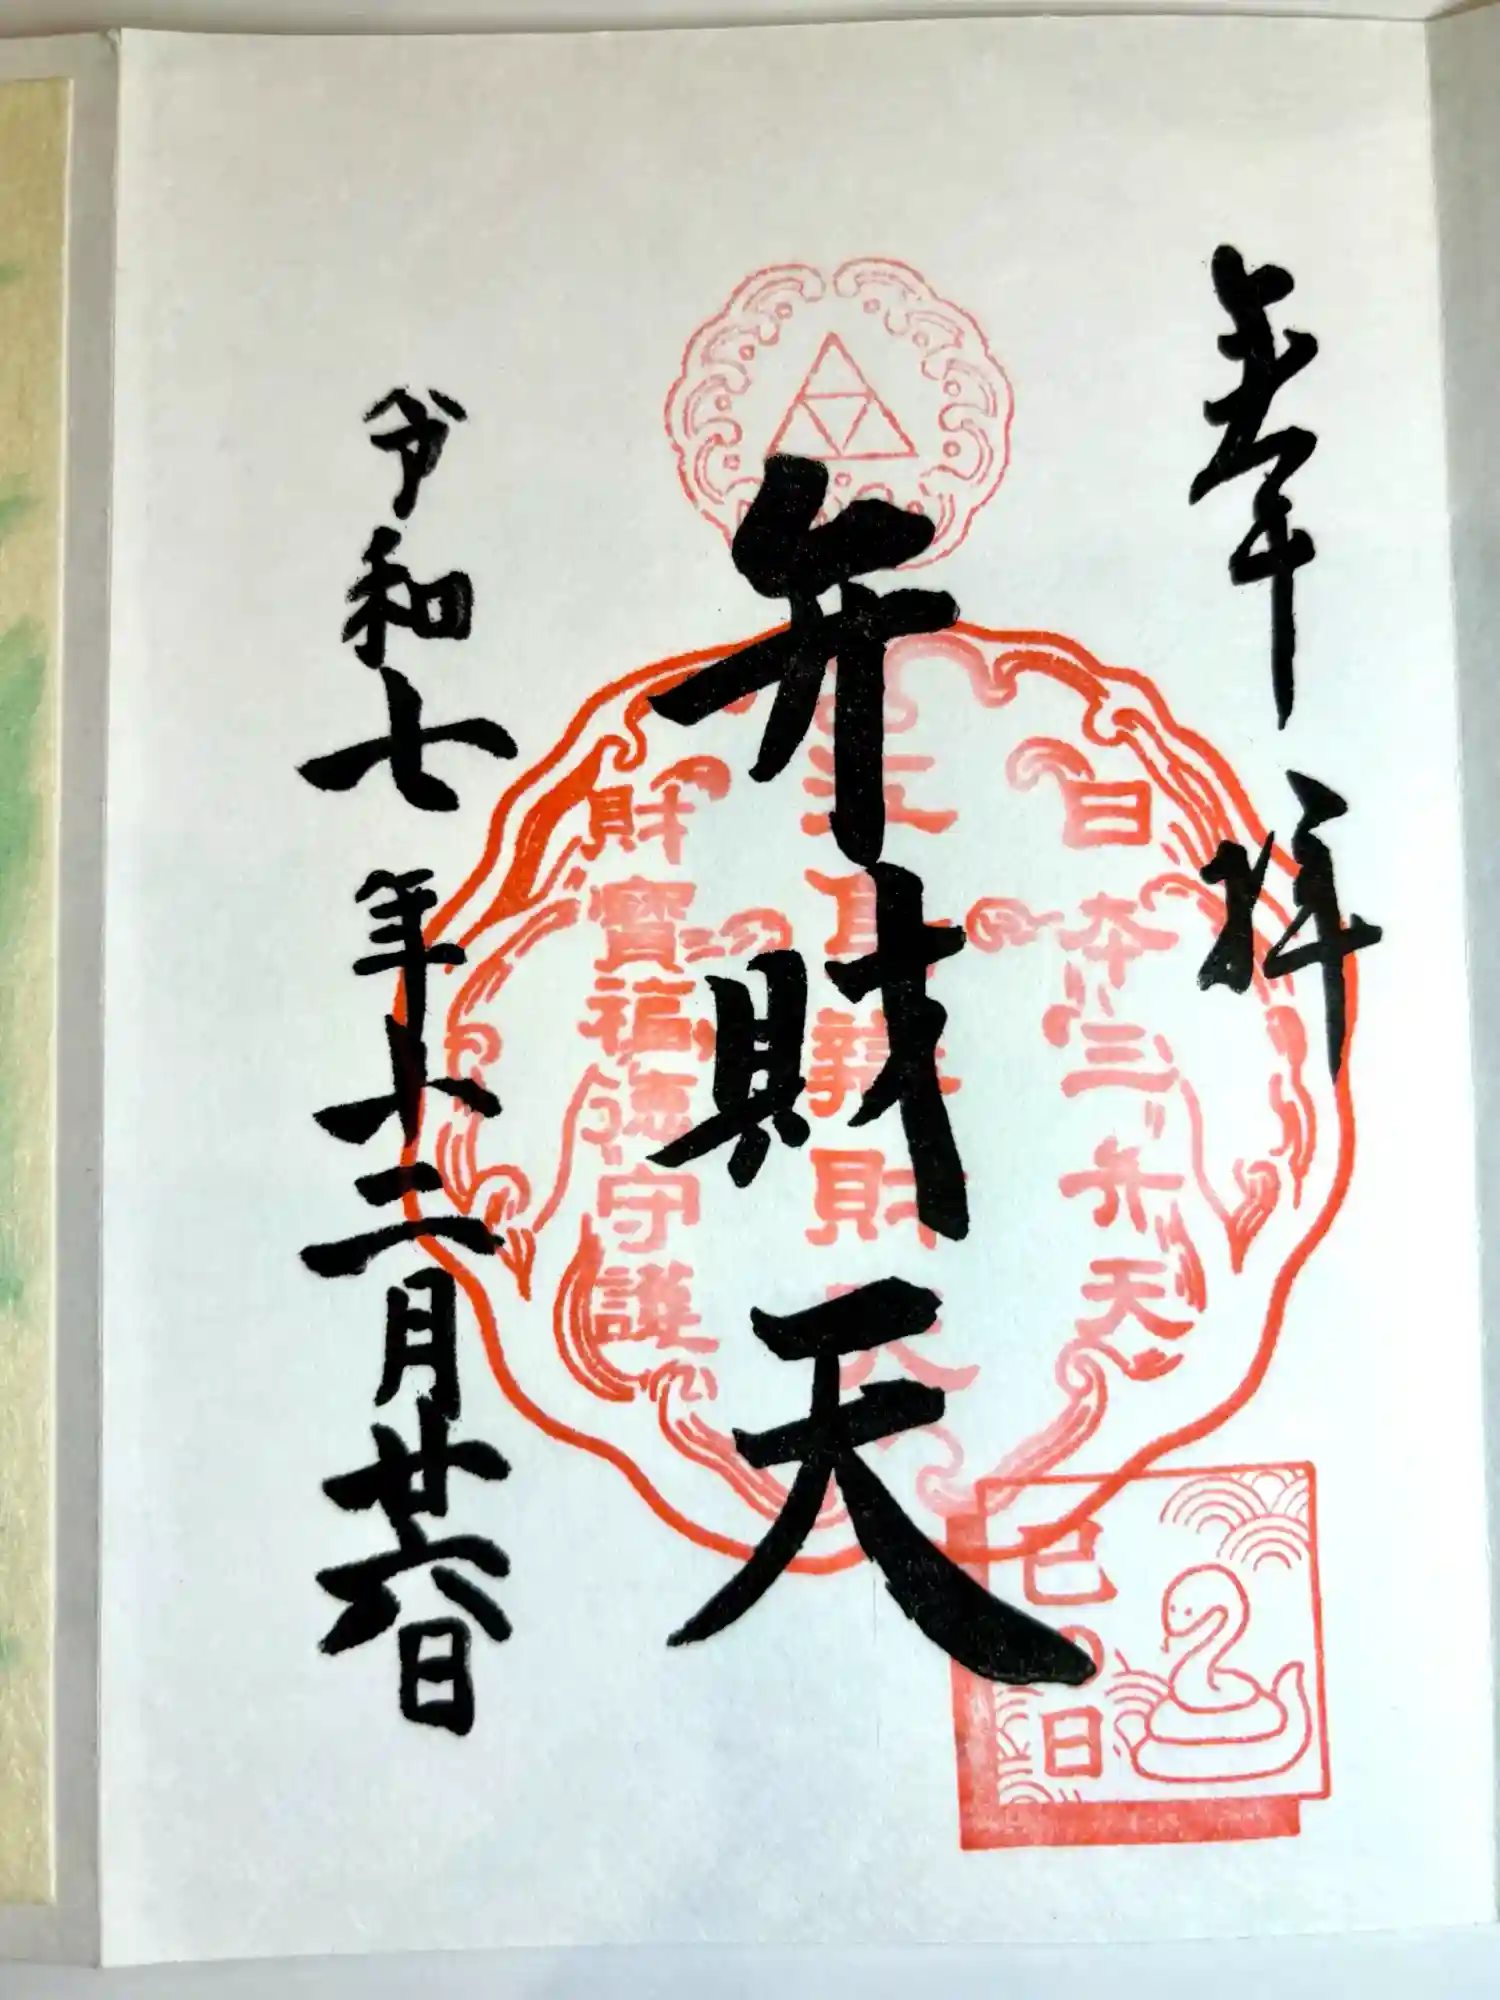 奉拝
日本三弁天
江島辨財天
財寶福徳守護
弁財天
令和七年十二月廿六日
巳の日